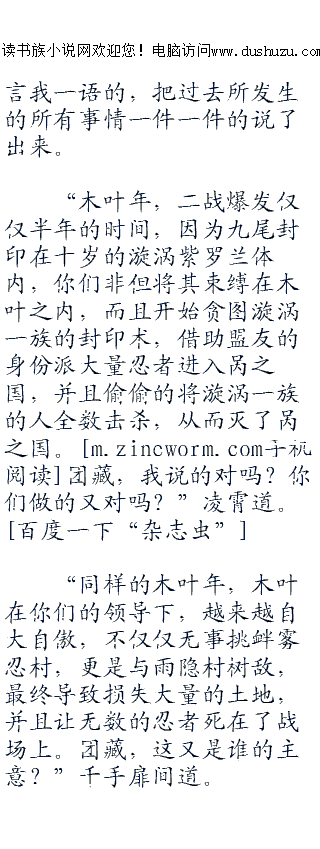 读书族小说网欢迎您！电脑访问www.dushuzu.com
言我一语的，把过去所发生
的所有事情一件一件的说了
出来。
“木叶年，二战爆发仅
仅半年的时间，因为九尾封
印在十岁的漩涡紫罗兰体
内，你们非但将其束缚在木
叶之内，而且开始贪图漩涡
一族的封印术，借助盟友的
身份派大量忍者进入呙之
国，并且偷偷的将漩涡一族
的人全数击杀，从而灭了呙
之国。[m.zincworm.com手机
阅读]团藏，我说的对吗？你
们做的又对吗？”凌霄道。
[百度一下“杂志虫”]
“同样的木叶年，木叶
在你们的领导下，越来越自
大自傲，不仅仅无事挑衅雾
忍村，更是与雨隐村树敌，
最终导致损失大量的土地，
并且让无数的忍者死在了战
场上。团藏，这又是谁的主
意？”千手扉间道。